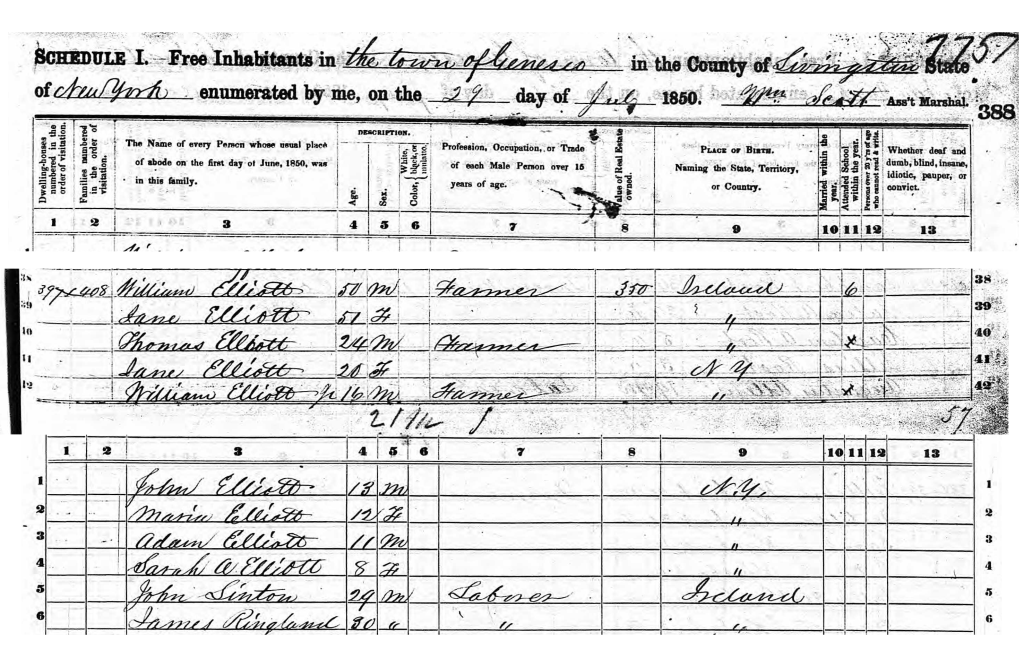 7757
SCHEDULE I. Free Inhabitants in the town of Geneseo in the County of Livingston State
of New York enumerated by me, on the 29 day of July 1850. Wm Scott Ass't Marshal. 388
Dwelling-houses numbered in the order of visitation.
Families numbered in the order of visitation.
The Name of every Person whose usual place of abode on the first day of June, 1850, was in this family.
DESCRIPTION.
Age.
Sex.
Color, White, black, or mulatto.
Profession, Occupation, or Trade of each Male Person over 15 years of age.
Value of Real Estate owned.
PLACE OF BIRTH. Naming the State, Territory, or Country.
Married within the year.
Attended School within the year.
Persons over 20 y'rs of age who cannot read & write.
Whether deaf and dumb, blind, insane, idiotic, pauper, or convict.
1 2 3 4 5 6 7 8 9 10 11 12 13
38 397 408 William Elliott 50 M Farmer 350 Ireland 6 38
39 Jane Elliott 51 F " 39
40 Thomas Elliott 24 M Farmer " x 40
41 Jane Elliott 20 F N Y 41
42 William Elliott Jr 16 M Farmer " x 42
57
1 2 3 4 5 6 7 8 9 10 11 12 13
1 John Elliott 13 M N.Y. 1
2 Maria Elliott 12 F " 2
3 Adam Elliott 11 M " 3
4 Sarah A Elliott 8 F " 4
5 John Linton 29 M Laborer Ireland 5
6 James Ringland 30 " " " 6